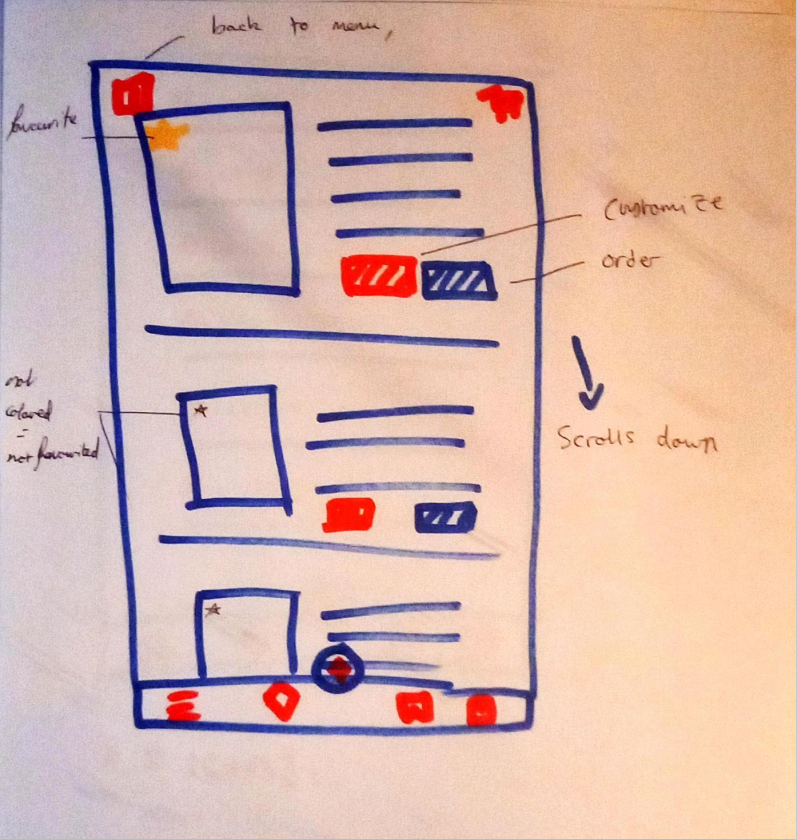 back to menu,
favourite
Customize
order
not
colored
=
not favourited
Scrolls down